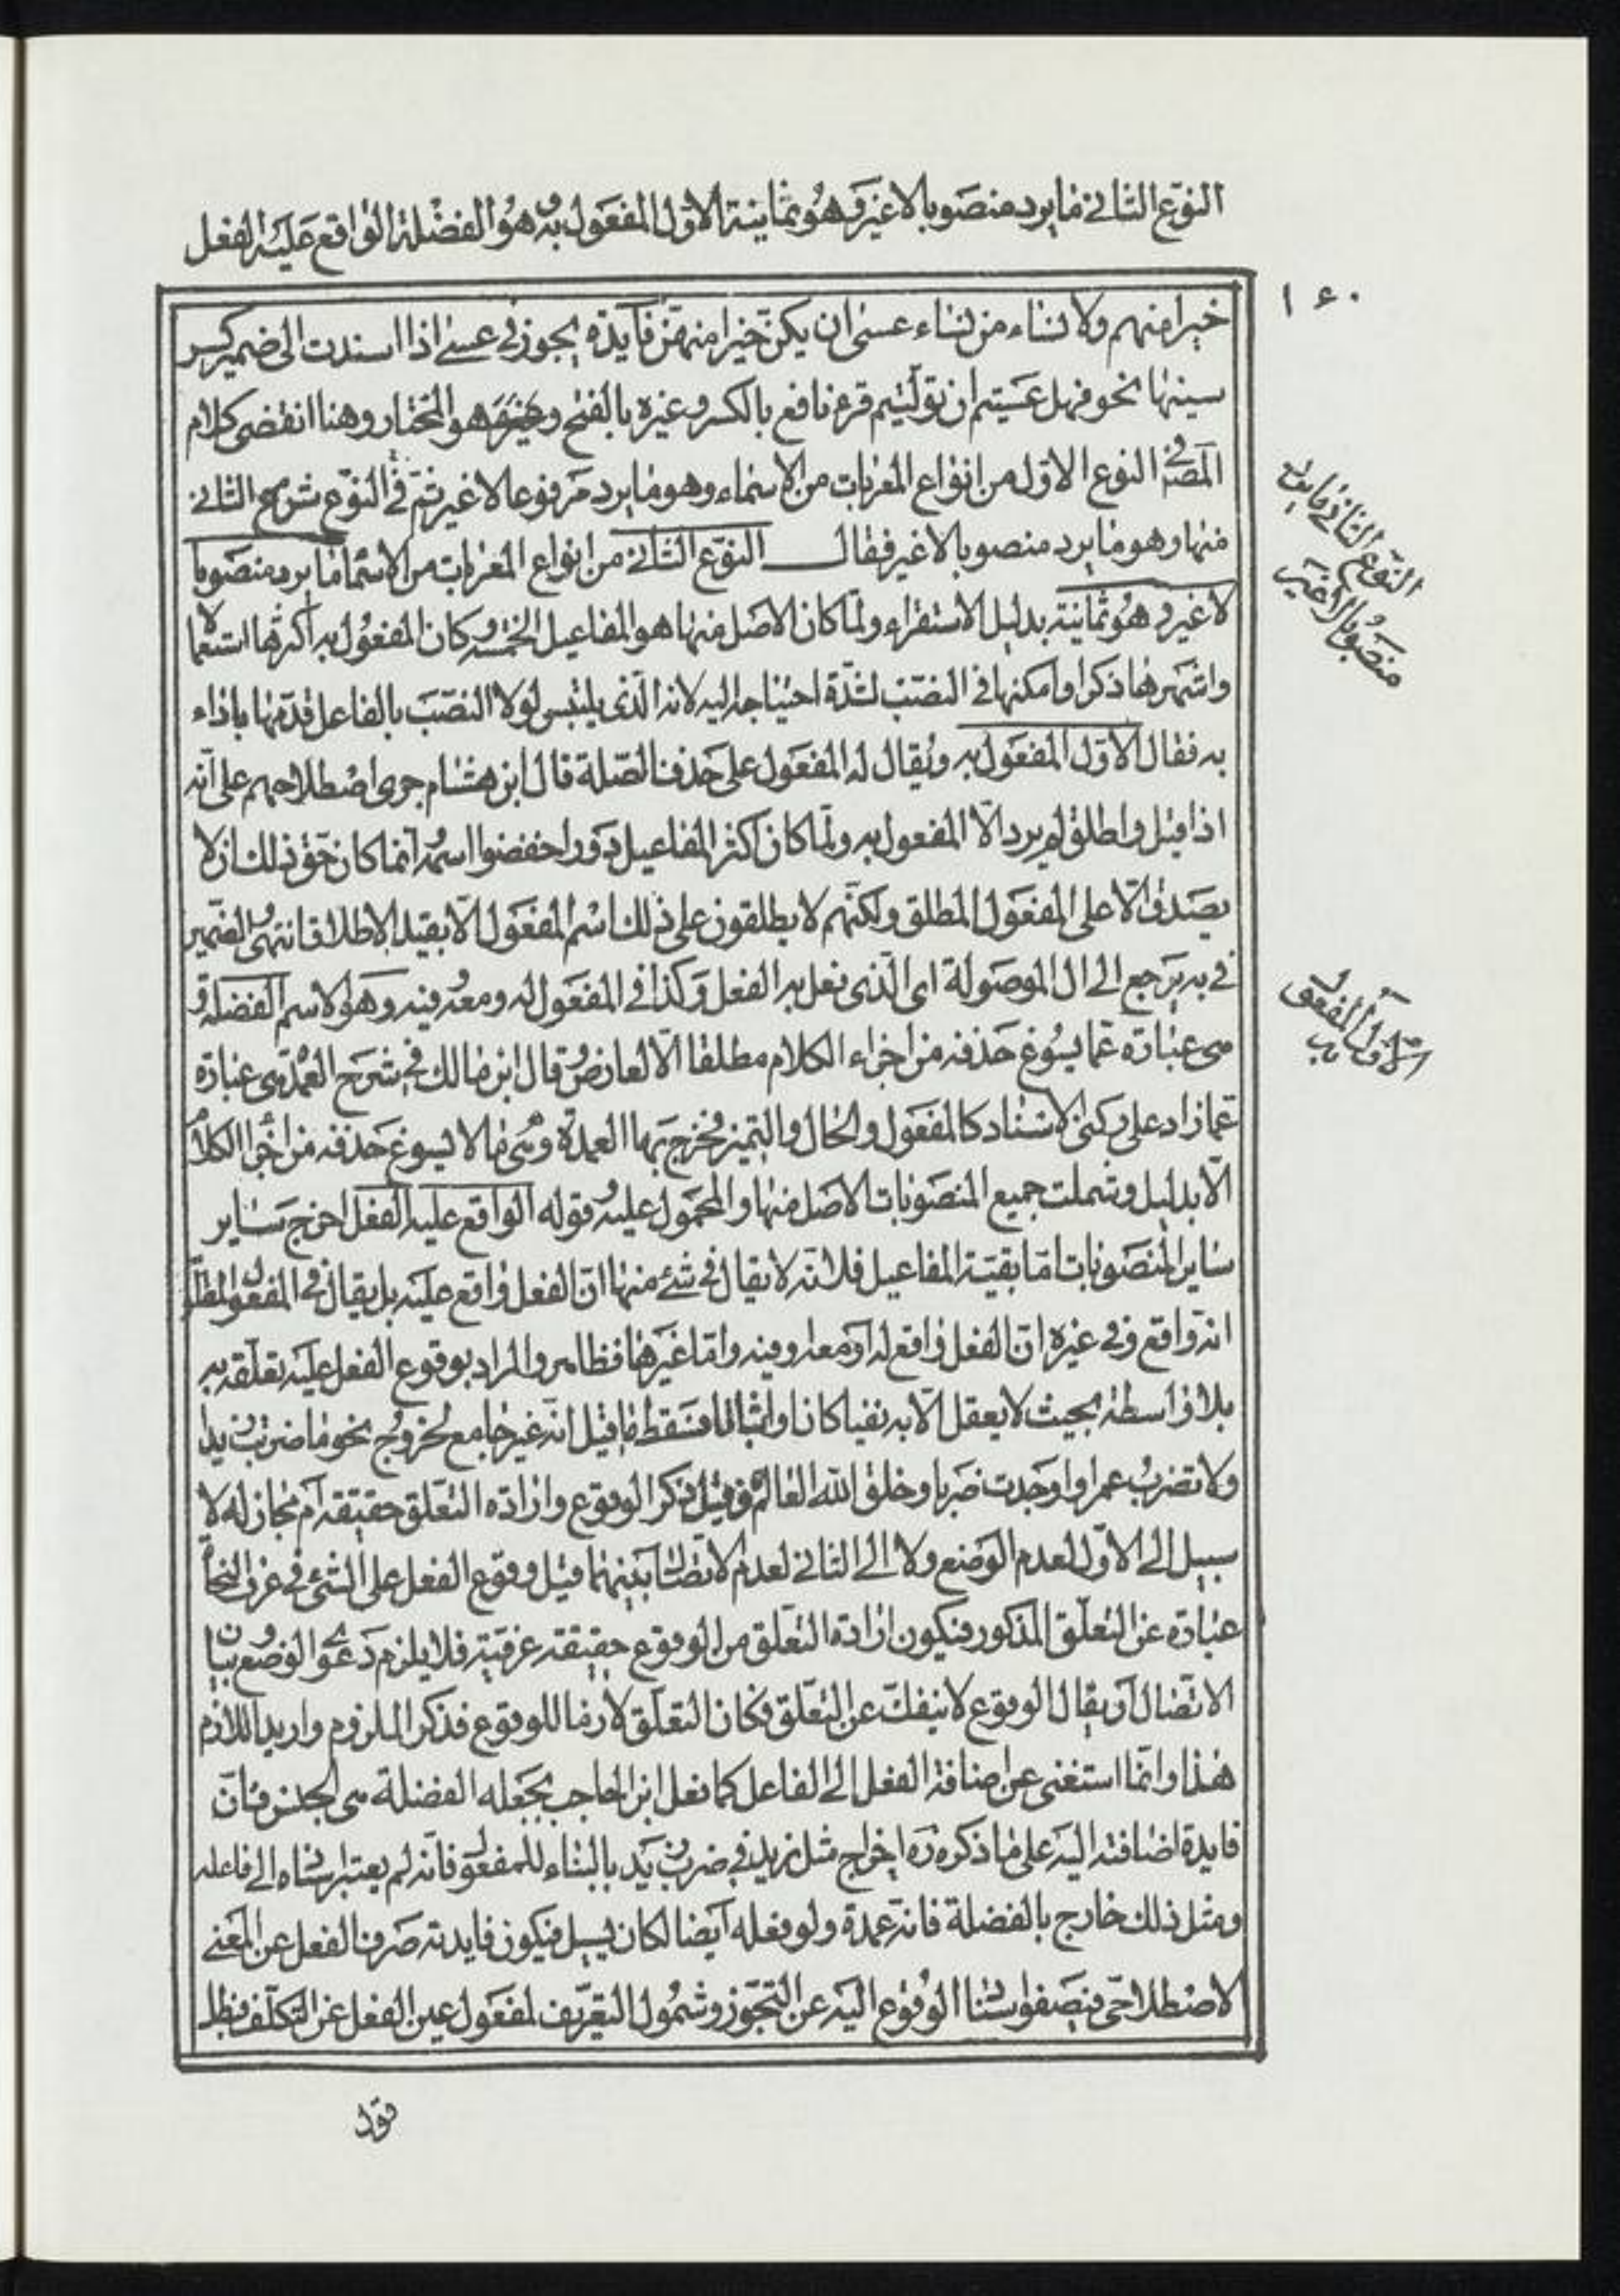 النوع الثاني ما يرد منصوبا لا غير وهو ثمانية الاول المفعول به وهو الفضلة الواقع عليه الفعل
١٤٠
خيرا منهم ولا نساء من نساء عسى ان يكن خيرا منهن فآيدة يجوز في عسى اذا اسندت الى ضمير كسر
سينها نحو فهل عسيتم ان توليتم قرء نافع بالكسر وغيره بالفتح وهو المختار وهنا انقضى كلام
المصنف في النوع الاول من انواع المعربات من الاسماء وهو ما يرد مرفوعا لا غير ثم في النوع شرع الثاني
النوع الثاني ما يرد
منصوبا لا غير
منها وهو ما يرد منصوبا لا غير فقال النوع الثاني من انواع المعربات من الاسما ما يرد منصوبا
لا غير وهو ثمانية بدليل الاستقراء ولما كان الاصل منها هو المفاعيل الخمسه وكان المفعول به اكثرها استعمالا
واشهرها ذكرا وامكنها في النصب لشدة احتياجه اليه لانه الذى يلتبس لولا النصب بالفاعل قدمها باداء
به فقال الاول المفعول به ويقال له المفعول على حذف الصلة قال ابن هشام جرى اصطلاحهم على انه
اذا قيل واطلق لم يرد الا المفعول به ولما كان اكثر المفاعيل دورا خففوا اسمه انما كان حق ذلك ان لا
يصدق الا على المفعول المطلق ولكنهم لا يطلقون على ذلك اسم المفعول الا بقيد الاطلاق انتهى والضمير
في به يرجع الى ال الموصولة اى الذى فعل به الفعل وكذا في المفعول له ومعه وفيه وهو الاسم الفضلة و
الاول المفعول
به
هى عبارة عما يسوغ حذفه من اجزاء الكلام مطلقا الا لعارض وقال ابن مالك في شرح العمدة هى عبارة
عما زاد على ركنى الاسناد كالمفعول والحال والتميز فخرج بها العمدة وهى ما لا يسوغ حذفه من اجزا الكلام
الا بدليل وشملت جميع المنصوبات الاصل منها والمحمول عليه وقوله الواقع عليه الفعل اخرج ساير
ساير المنصوبات اما بقية المفاعيل فلانه لا يقال في شئ منها ان الفعل واقع عليه بل يقال في المفعول المطلق
انه واقع وفى غيره ان الفعل واقع له او معه او فيه واما غيرها فظاهر والمراد بوقوع الفعل عليه تعلقه به
بلا واسطة بحيث لا يعقل الا به نفيا كان او اثباتا فسقط ما قيل انه غير جامع لخروج نحو ما ضربت زيدا
ولا تضرب عمرا واوجدت ضربا وخلق الله العالم وقيل ذكر الوقوع وارادة التعلق حقيقة ام مجاز له لا
سبيل الى الاول لعدم الوضع ولا الى الثاني لعدم الاتصال بينهما قيل وقوع الفعل على الشئ في عرف النحاة
عبارة عن التعلق المذكور فيكون ارادة التعلق من الوقوع حقيقة عرفية فلا يلزم دعوى الوضع وبيان
الاتصال او يقال الوقوع لا ينفك عن التعلق فكان التعلق لازما للوقوع فذكر الملزوم واريد اللازم
هذا وانما استغنى عن اضافة الفعل الى الفاعل كما فعل ابن الحاجب بجعله الفضلة هى الجنس فان
فايدة اضافته اليه على ما ذكروه اخراج مثل زيد في ضرب زيد بالبناء للمفعول فانه لم يعتبر اسناده الى فاعله
ومثل ذلك خارج بالفضلة فانه عمدة ولو فعله ايضا لكان فيكون فايدته صرف الفعل عن المعنى
لاصطلاحى الوقوع اليه عن التجوز وشمول التعريف لمفعول عين الفعل عن التكلف